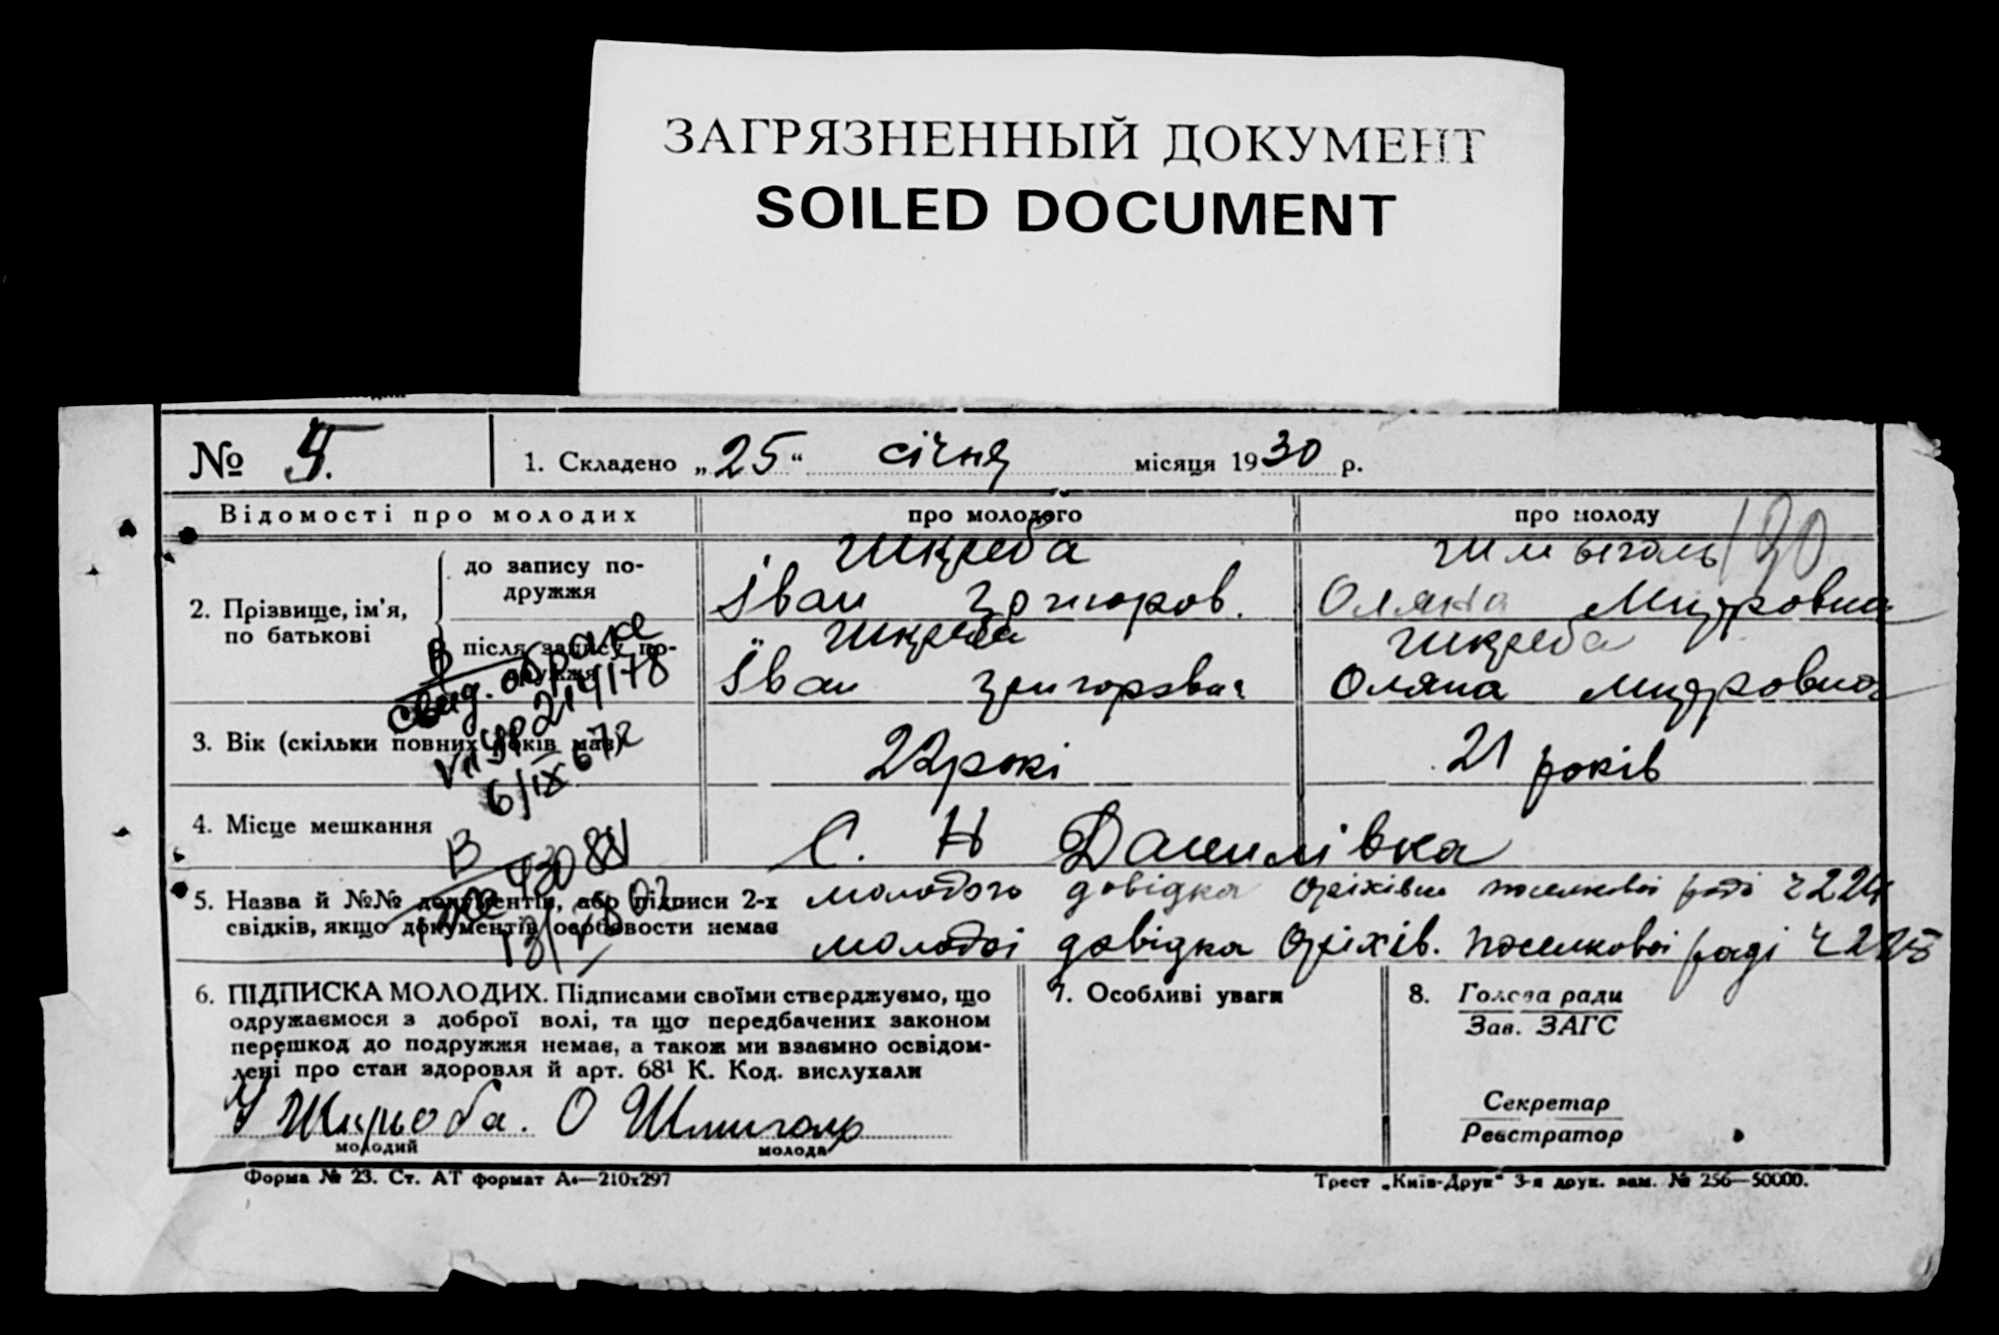 ЗАГРЯЗНЕННЫЙ ДОКУМЕНТ
SOILED DOCUMENT
№ 5.
1. Складено „25“ січня місяця 1930 р.
Відомості про молодих
про молодого
про молоду
2. Прізвище, ім'я, по батькові
до запису подружжя
Шкреба
Іван Григоров.
Шмыгаль
Оляна Мидровна
190
після запису подружжя
Шкреба
Іван Григорович
Шкреба
Оляна Мидровна
3. Вік (скільки повних років має)
22 рокі
21 років
4. Місце мешкання
С. Н Данилівка
5. Назва й №№ документів, або підписи 2-х
свідків, якщо документів особовости немає
молодого довідка Оріхівсь поселковоі раді ч 224
молодоі довідка Оріхів. поселковоі раді ч 225
В
свид. о браке
6/IX 67 г
В
6. ПІДПИСКА МОЛОДИХ. Підписами своїми стверджуємо, що
одружаємося з доброї волі, та що передбачених законом
перешкод до подружжя немає, а також ми взаємно освідом-
лені про стан здоровля й арт. 68¹ К. Код. вислухали
О Шмигаль
молодий
молода
7. Особливі уваги
8. Голова ради
Зав. ЗАГС
Секретар
Реєстратор
Форма № 23. Ст. АТ формат А₄—210х297
Трест „Київ-Друк“ 3-я друк. зам. № 256—50000.